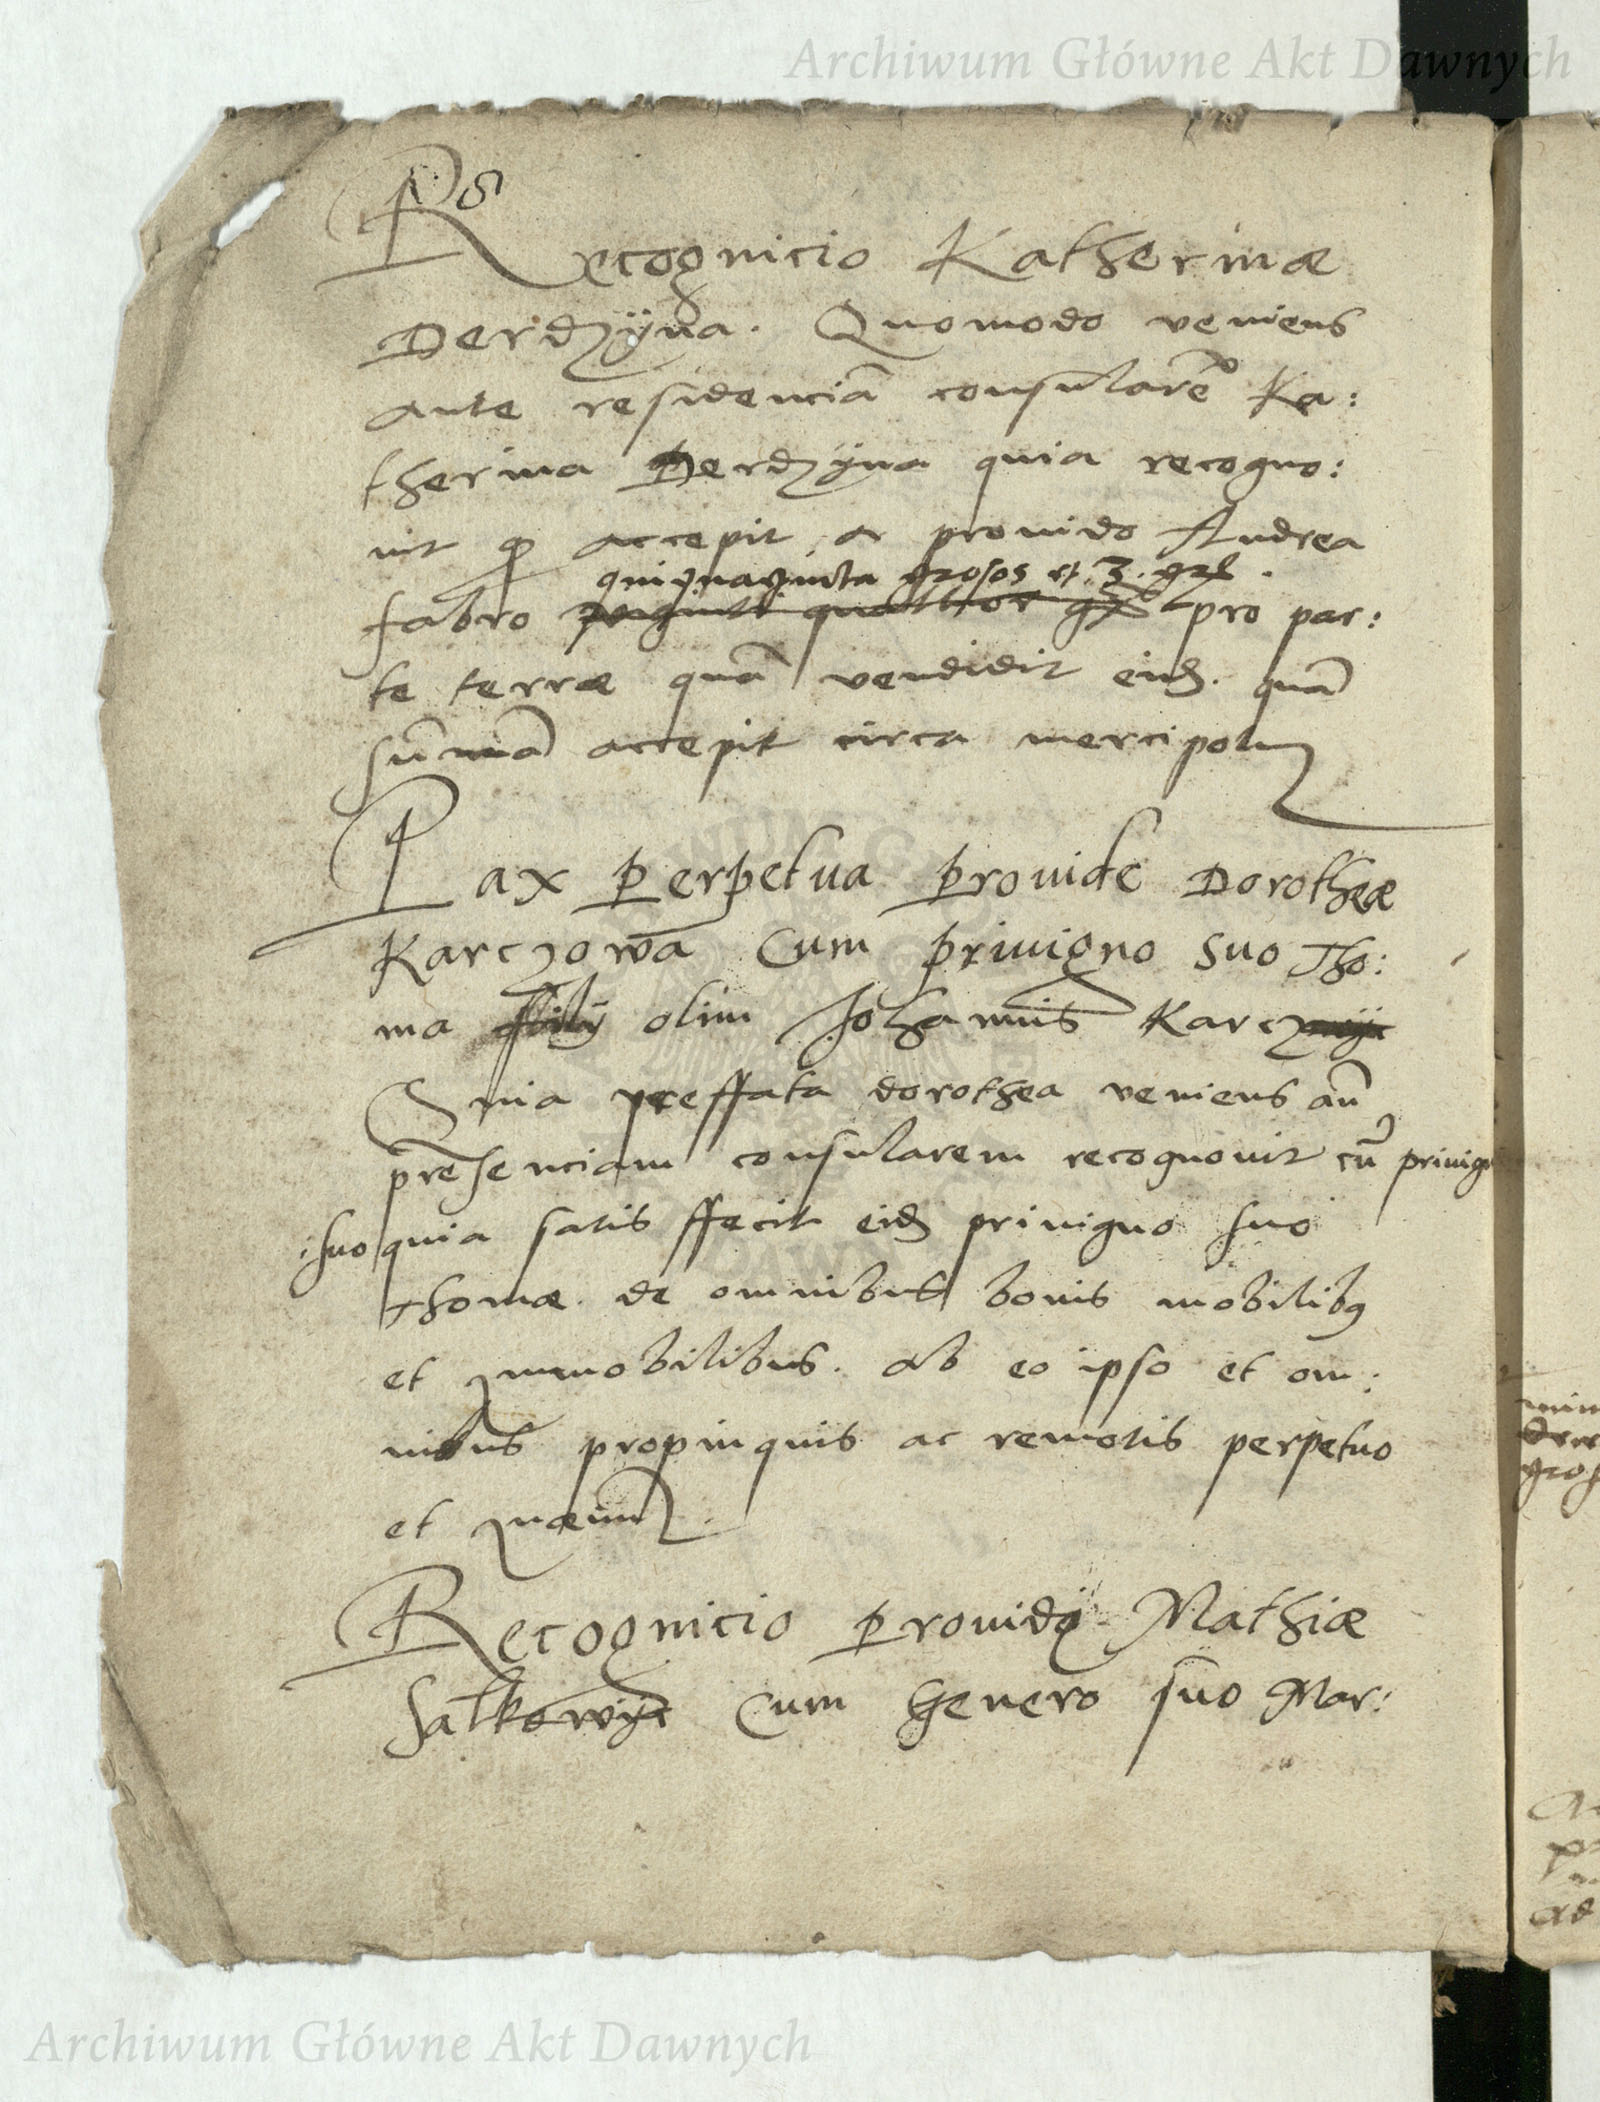 Archiwum Główne Akt Dawnych
Recognicio Katherinæ
Derdzÿna. Quomodo veniens
ante residenciã consularẽ Ka:
therina Derdzÿna quia recogno:
uit accepit a prouido Andrea
quinquaginta grosos et 3. grl.
fabro quattuor pro par:
te terræ quã vendidit eid. quã
sum̃ã accepit circa mercipotu
Pax perpetua prouide Dorotheæ
Karczowa Cum priuigno suo Tho:
ma filÿ olim Johannis Karcz
Quia preffata dorothea veniens añ
presenciam consularem recognouit cũ priuig
suo quia satis ffecit eid priuigno suo
Thomæ. de omnibus bonis mobilibꝫ
et Immobilibus. Ab eo ipso et om:
nibus propinquis ac remotis perpetuo
et In æuum.
Recognicio prouidi Mathiæ
Salkowÿc Cum Genero suo Mar:
Archiwum Główne Akt Dawnych